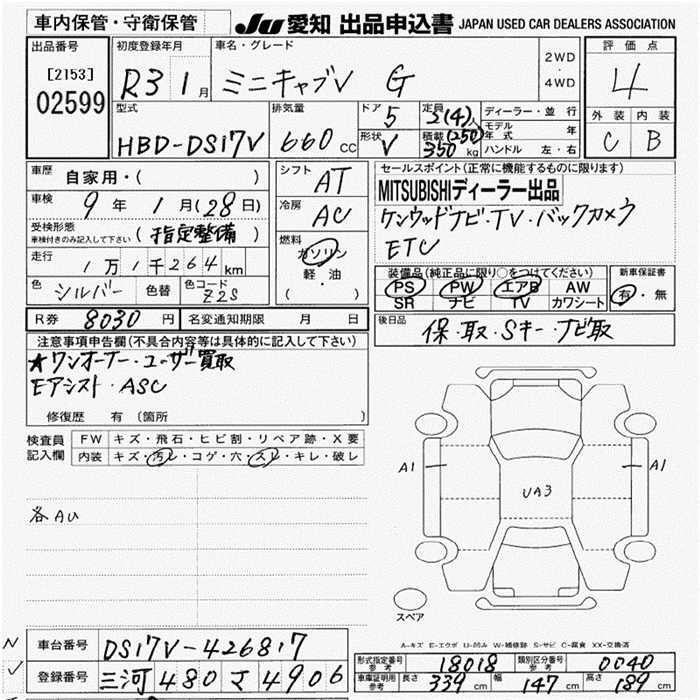 車内保管・守衛保管
JU 愛知 出品申込書 JAPAN USED CAR DEALERS ASSOCIATION
出品番号
[2153]
02599
初度登録年月
R3 1月
車名・グレード
ミニキャブV G
2WD
・
4WD
評価点
4
外装 内装
C B
型式
HBD-DS17V
排気量
660 CC
ドア
5
形状
V
定員
2(4)人
積載 (250)
350 kg
ディーラー・並行
モデル年式 年
ハンドル 左・右
車歴
自家用・( )
車検
9年 1月(28日)
受検形態
車検付きのみ記入して下さい
(指定整備)
走行
1万1千264km
色
シルバー
色替
色コード
Z2S
シフト
AT
冷房
AC
燃料
ガソリン
軽・油
( )
セールスポイント(正常に機能するものに限ります)
MITSUBISHIディーラー出品
ケンウッドナビ・TV・バックカメラ
ETC
装備品(純正品に限り○をつけてください)
PS PW エアB AW
SR ナビ TV カワシート
新車保証書
有・無
R券 8030円 名変通知期限 月 日
後日品
保・取・Sキー・ナビ取
注意事項申告欄(不具合内容等は具体的に記入して下さい)
★ワンオーナー・ユーザー買取
Eアシスト・ASC
修復歴 有〔箇所
検査員
記入欄
FW キズ・飛石・ヒビ割・リペア跡・X要
内装 キズ・汚レ・コゲ・穴・スレ・キレ・破レ
各AU
A1
UA3
A1
スペア
A-キズ E-エクボ U-凹み W-補修跡 S-サビ C-腐食 XX-交換済
N
車台番号 DS17V-426817
登録番号 三河 480 さ 4906
形式指定番号
参考
18018
類別区分番号
参考
0040
車庫証明用
参考
長さ 339cm 幅 147cm 高さ 189cm